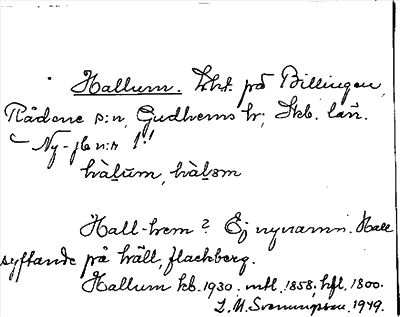 Hallum. på Billingen,
Rådene s:n, Gudhems hr; Skb. län.
Ny-
hàlum, hàlsm
Hall-hem? Ej nynamn. Hall
syftande på häll, flackberg.
Hallum kb. 1930. mtl. 1858, hfl. 1800.
1949.